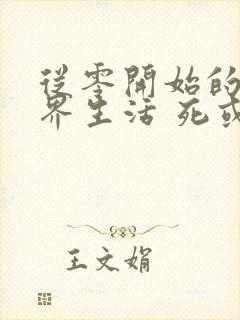 從零開始的
界生活 死或
王文娟